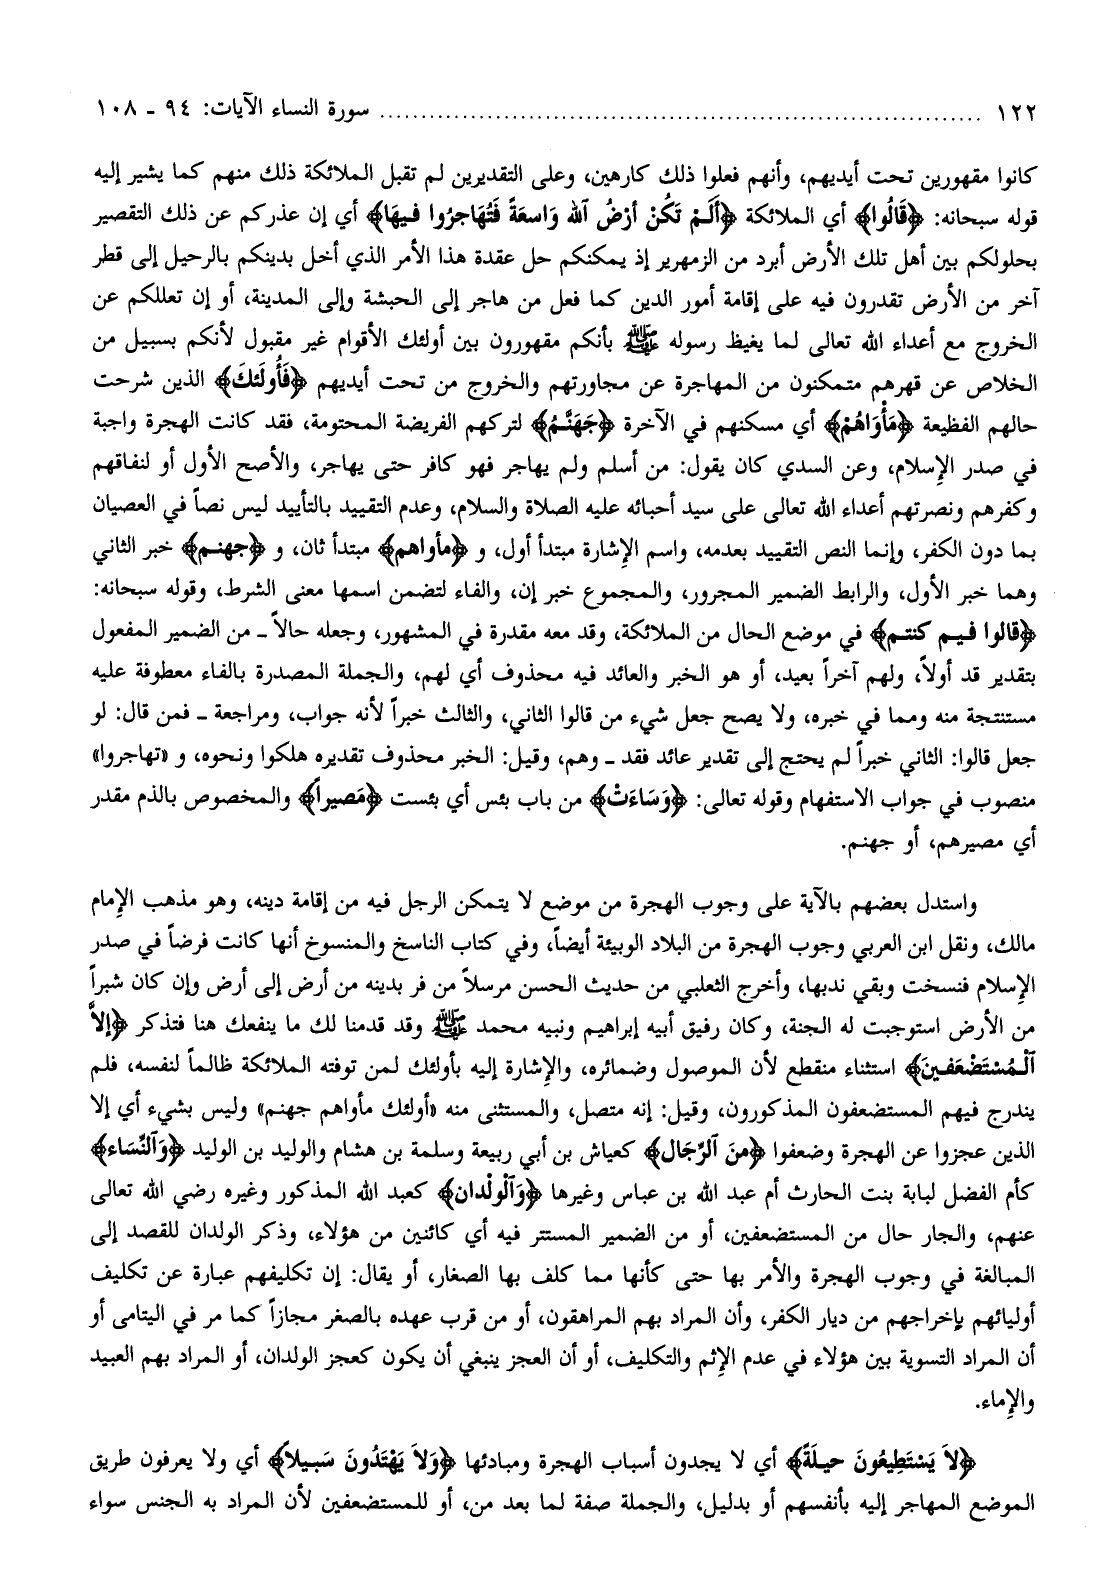 ١٢٢ ........................................................................ سورة النساء الآيات: ٩٤ ـ ١٠٨
كانوا مقهورين تحت أيديهم، وأنهم فعلوا ذلك كارهين، وعلى التقديرين لم تقبل الملائكة ذلك منهم كما يشير إليه
قوله سبحانه: ﴿قَالُوا﴾ أي الملائكة ﴿أَلَمْ تَكُنْ أَرْضُ ٱللَّهِ وَاسِعَةً فَتُهَاجِرُوا فِيهَا﴾ أي إن عذركم عن ذلك التقصير
بحلولكم بين أهل تلك الأرض أبرد من الزمهرير إذ يمكنكم حل عقدة هذا الأمر الذي أخل بدينكم بالرحيل إلى قطر
آخر من الأرض تقدرون فيه على إقامة أمور الدين كما فعل من هاجر إلى الحبشة وإلى المدينة، أو إن تعللكم عن
الخروج مع أعداء الله تعالى لما يغيظ رسوله ﷺ بأنكم مقهورون بين أولئك الأقوام غير مقبول لأنكم بسبيل من
الخلاص عن قهرهم متمكنون من المهاجرة عن مجاورتهم والخروج من تحت أيديهم ﴿فَأُولَئِكَ﴾ الذين شرحت
حالهم الفظيعة ﴿مَأْوَاهُمْ﴾ أي مسكنهم في الآخرة ﴿جَهَنَّمُ﴾ لتركهم الفريضة المحتومة، فقد كانت الهجرة واجبة
في صدر الإسلام، وعن السدي كان يقول: من أسلم ولم يهاجر فهو كافر حتى يهاجر، والأصح الأول أو لنفاقهم
وكفرهم ونصرتهم أعداء الله تعالى على سيد أحبائه عليه الصلاة والسلام، وعدم التقييد بالتأييد ليس نصاً في العصيان
بما دون الكفر، وإنما النص التقييد بعدمه، واسم الإشارة مبتدأ أول، و ﴿مأواهم﴾ مبتدأ ثان، و ﴿جهنم﴾ خبر الثاني
وهما خبر الأول، والرابط الضمير المجرور، والمجموع خبر إن، والفاء لتضمن اسمها معنى الشرط، وقوله سبحانه:
﴿قالوا فيم كنتم﴾ في موضع الحال من الملائكة، وقد معه مقدرة في المشهور، وجعله حالاً ـ من الضمير المفعول
بتقدير قد أولاً، ولهم آخراً بعيد، أو هو الخبر والعائد فيه محذوف أي لهم، والجملة المصدرة بالفاء معطوفة عليه
مستنتجة منه ومما في خبره، ولا يصح جعل شيء من قالوا الثاني، والثالث خبراً لأنه جواب، ومراجعة ـ فمن قال: لو
جعل قالوا: الثاني خبراً لم يحتج إلى تقدير عائد فقد ـ وهم، وقيل: الخبر محذوف تقديره هلكوا ونحوه، و «تهاجروا»
منصوب في جواب الاستفهام وقوله تعالى: ﴿وَسَاءَتْ﴾ من باب بئس أي بئست ﴿مَصِيراً﴾ والمخصوص بالذم مقدر
أي مصيرهم، أو جهنم.
واستدل بعضهم بالآية على وجوب الهجرة من موضع لا يتمكن الرجل فيه من إقامة دينه، وهو مذهب الإمام
مالك، ونقل ابن العربي وجوب الهجرة من البلاد الوبيئة أيضاً، وفي كتاب الناسخ والمنسوخ أنها كانت فرضاً في صدر
الإسلام فنسخت وبقي ندبها، وأخرج الثعلبي من حديث الحسن مرسلاً من فر بدينه من أرض إلى أرض وإن كان شبراً
من الأرض استوجبت له الجنة، وكان رفيق أبيه إبراهيم ونبيه محمد ﷺ وقد قدمنا لك ما ينفعك هنا فتذكر ﴿إِلاَّ
ٱلْمُسْتَضْعَفِينَ﴾ استثناء منقطع لأن الموصول وضمائره، والإشارة إليه بأولئك لمن توفته الملائكة ظالماً لنفسه، فلم
يندرج فيهم المستضعفون المذكورون، وقيل: إنه متصل، والمستثنى منه «أولئك مأواهم جهنم» وليس بشيء أي إلا
الذين عجزوا عن الهجرة وضعفوا ﴿مِنَ ٱلرِّجَالِ﴾ كعياش بن أبي ربيعة وسلمة بن هشام والوليد بن الوليد ﴿وَٱلنِّسَاءِ﴾
كأم الفضل لبابة بنت الحارث أم عبد الله بن عباس وغيرها ﴿وَٱلْوِلْدَانِ﴾ كعبد الله المذكور وغيره رضي الله تعالى
عنهم، والجار حال من المستضعفين، أو من الضمير المستتر فيه أي كائنين من هؤلاء، وذكر الولدان للقصد إلى
المبالغة في وجوب الهجرة والأمر بها حتى كأنها مما كلف بها الصغار، أو يقال: إن تكليفهم عبارة عن تكليف
أوليائهم بإخراجهم من ديار الكفر، وأن المراد بهم المراهقون، أو من قرب عهده بالصغر مجازاً كما مر في اليتامى أو
أن المراد التسوية بين هؤلاء في عدم الإثم والتكليف، أو أن العجز ينبغي أن يكون كعجز الولدان، أو المراد بهم العبيد
والإماء.
﴿لاَ يَسْتَطِيعُونَ حِيلَةً﴾ أي لا يجدون أسباب الهجرة ومبادئها ﴿وَلاَ يَهْتَدُونَ سَبِيلاً﴾ أي ولا يعرفون طريق
الموضع المهاجر إليه بأنفسهم أو بدليل، والجملة صفة لما بعد من، أو للمستضعفين لأن المراد به الجنس سواء